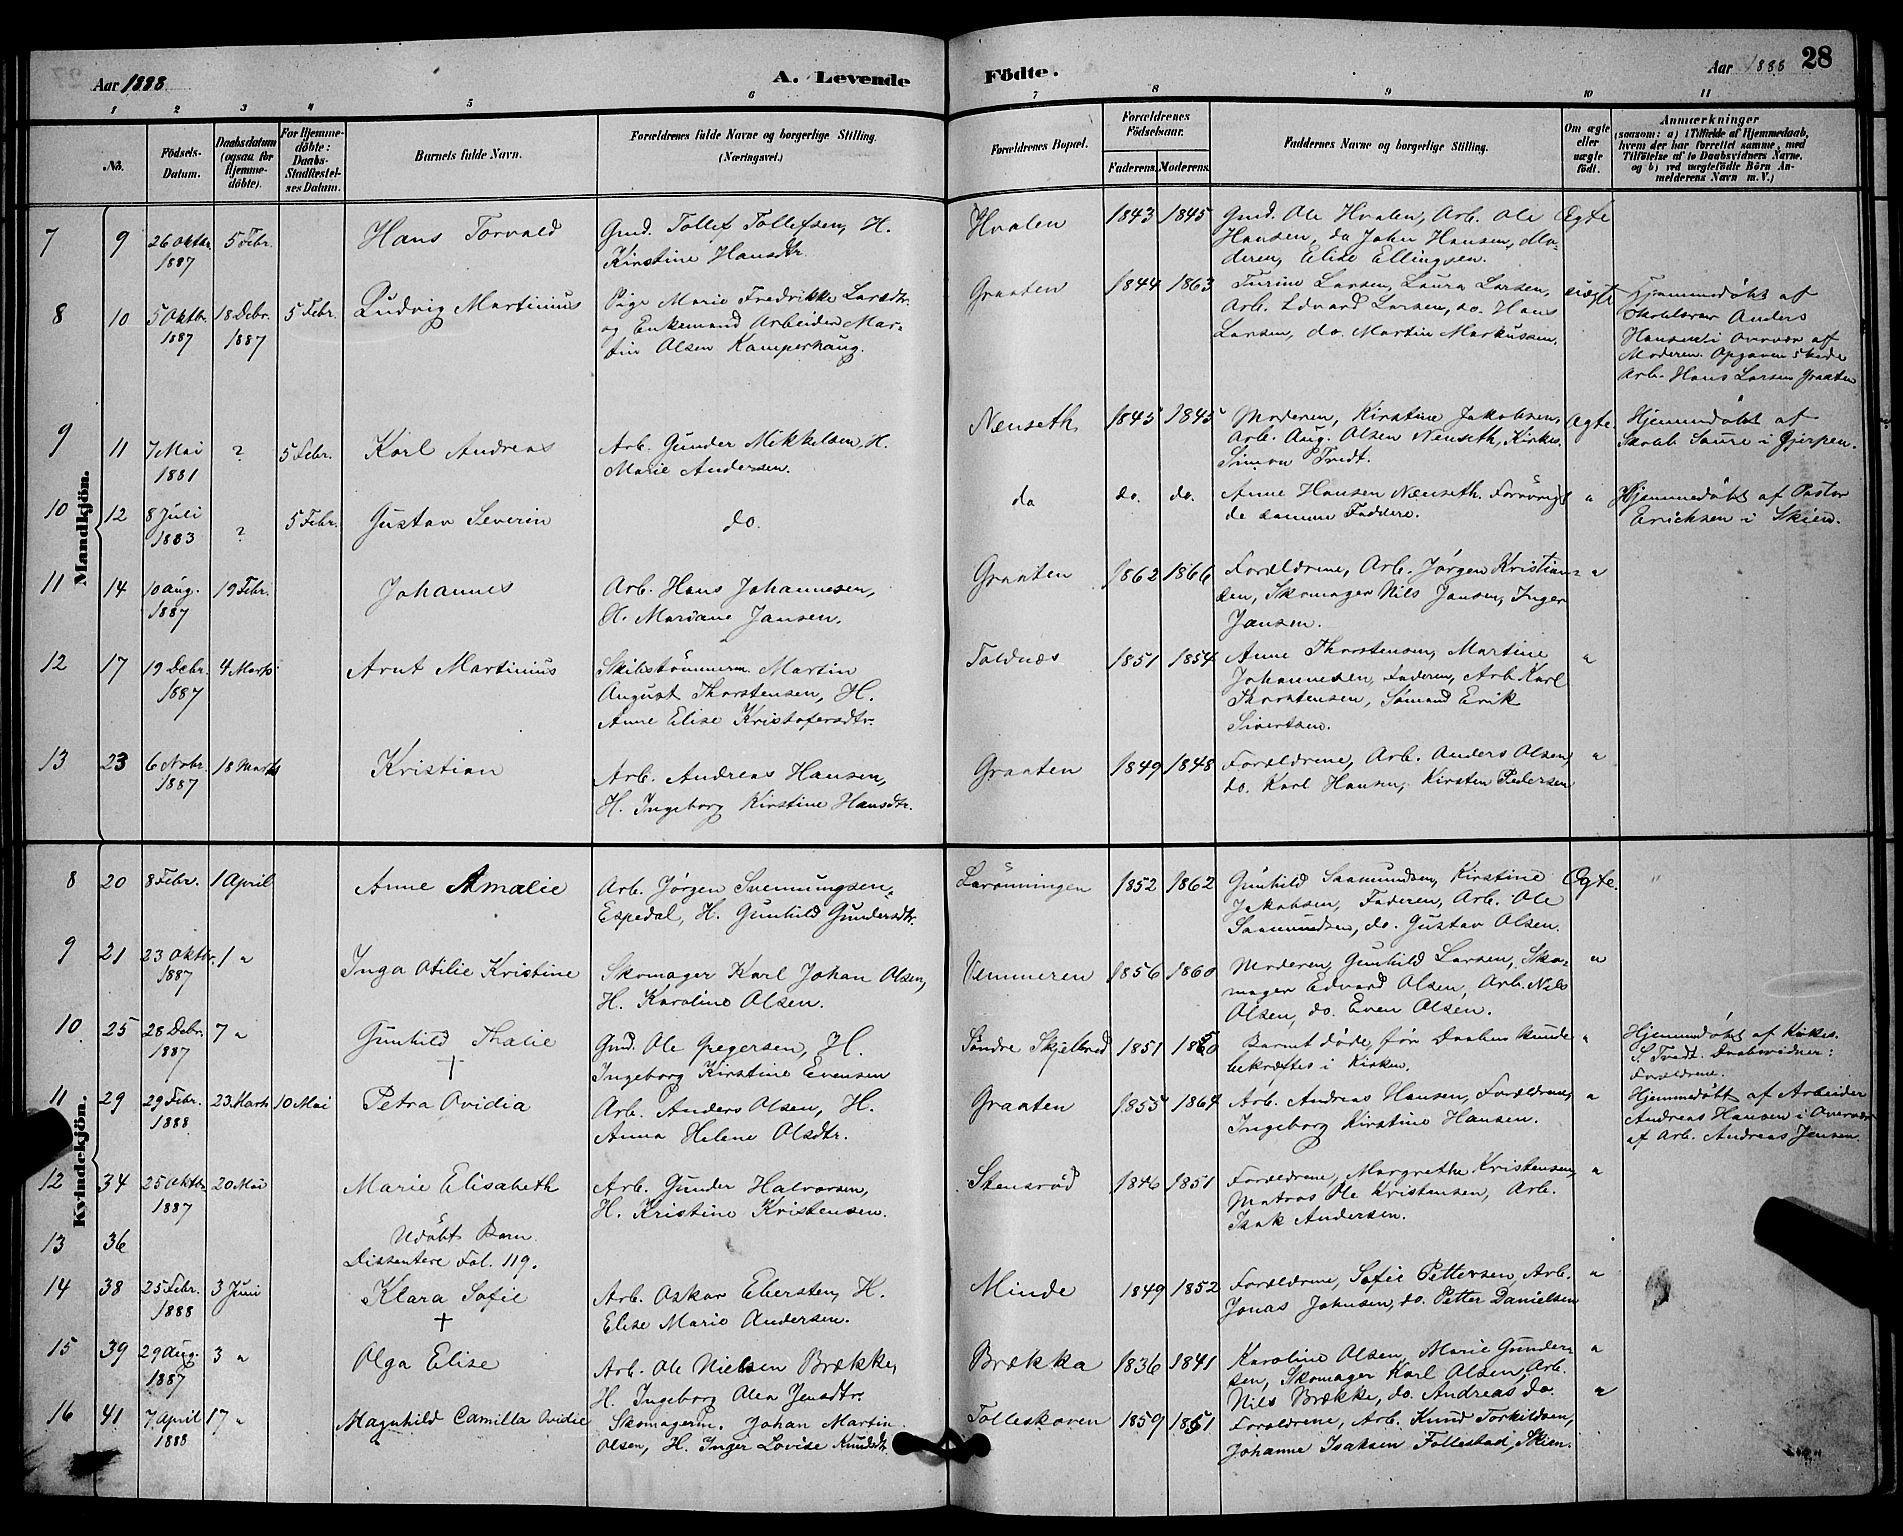 Aar 1888.
A. Levende
Födte.
Aar 1888
28
1 2 3 4 5 6 7 8 9 10 11
No.
Födsels-
Datum.
Daabsdatum
(ogsaa for
Hjemme-
döbte).
For Hjemme-
döbte:
Daabs-
Stadfæstel-
ses Datum.
Barnets fulde Navn.
Forældrenes fulde Navne og borgerlige Stilling.
(Næringsvei.)
Forældrenes Bopæl.
Forældrenes
Födselsaar.
Faderens. Moderens.
Faddernes Navne og borgerlige Stilling.
Om ægte
eller
uægte
födt.
Anmærkninger
(saasom: a) i Tilfælde af Hjemmedaab,
hvem der har forrettet samme, med
Tilföielse af to Daabsvidners Navne,
og b) ved uægtefödte Börn An-
melderens Navn m. V.)
Mandkjön.
7 9 26 Oktbr. 1887 5 Febr. Hans Torvald
Gmd. Tollef Tollefsen, H.
Kirstine Hansdtr.
Hvalen 1843 1845
Gmd. Ole Hvalen, Arb. Ole
Hansen, do John Hansen, Mo-
deren, Elise Ellingsen.
Ægte
8 10 5 Oktbr. 1887 18 Debr. 1887 5 Febr. Ludvig Martinius
Pige Marie Fredrikke Larsdtr.
og Enkemand Arbeider Mar-
tin Olsen Kamperhaug.
Graaten 1844 1863
Turine Larsen, Laura Larsen,
Arb. Edvard Larsen, do. Hans
Larsen, do. Martin Markussen.
uægte
Hjemmedöbt af
Anders
Hansen i Overvær af
Moderen. Opgaven skede
Arb. Hans Larsen Graaten
9 11 7 Mai 1881 ? 5 Febr. Karl Andreas
Arb. Gunder Mikkelsen, H.
Marie Andersen.
Nenseth 1845 1845
Moderen, Kirstine Jakobsen,
Arb. Aug. Olsen Nenseth, Kirkes.
Simon Tvedt.
Ægte.
Hjemmedöbt af
i Gjerpen.
10 12 8 Juli 1883 ? 5 Febr. Gustav Severin
do.
do do. do.
Anne Hansen Nenseth. Forövrigt
de samme Faddere.
"
Hjemmedöbt af Pastor
Ericksen i Skien.
11 14 10 Aug. 1887 19 Febr. Johannes
Arb. Hans Johannesen,
H. Mariane Jansen.
Graaten 1862 1866
Forældrene, Arb. Jørgen Kristian-
sen, Skomager Nils Jansen, Inger
Jansen.
"
12 17 19 Debr. 1887 4 Marts Arnt Martinius
Skibstömmerm. Martin
August Thorstensen, H.
Anne Elise Kristofersdtr.
Toldnæs 1851 1854
Anne Thorstensen, Martine
Johannesen, Faderen, Arb. Karl
Thorstensen, Sömand Erik
Sivertsen.
"
13 23 6 Novbr. 1887 18 Marts Kristian
Arb. Andreas Hansen,
H. Ingeborg Kirstine Hansdtr.
Graaten 1849 1848
Forældrene, Arb. Anders Olsen,
do. Karl Hansen, Kirsten Pedersen
"
Kvindekjön.
8 20 8 Febr. 1 April Anne Amalie
Arb. Jørgen Svennungsen
Espedal, H. Gunhild Gundersdtr.
Larönningen 1852 1862
Gunhild Saamundsen, Kirstine
Jakobsen, Faderen, Arb. Ole
Saamundsen, do. Gustav Olsen.
Ægte.
"
9 21 23 Oktbr. 1887 1 " Inga Otilie Kristine
Skomager Karl Johan Olsen,
H. Karoline Olsen.
Vemmeren 1856 1860
Moderen, Gunhild Larsen, Sko-
mager Edvard Olsen, Arb. Nils
Olsen, do. Even Olsen.
"
10 25 28 Debr. 1887 7 " Gunhild Thalie
†
Gmd. Ole Gregersen, H.
Ingeborg Kirstine Evensen
Söndre Skjelbred 1851 1850
Barnet döde, för Daaben kunde
bekræftes i Kirken.
"
Hjemmedöbt af Kirkes.
S. Tvedt. Daabsvidner:
Forældrene.
11 29 29 Febr. 1888 23 Marts 10 Mai Petra Ovidia
Arb. Anders Olsen, H.
Anna Helene Olsdtr.
Graaten 1855 1864
Arb. Andreas Hansen, Forældrene,
Ingeborg Kirstine Hansen.
"
Hjemmedöbt af Arbeider
Andreas Hansen i Overvær
af Arb. Andreas Jensen.
12 34 25 Oktbr. 1887 20 Mai Marie Elisabeth
Arb. Gunder Halvorsen,
H. Kristine Kristensen.
Stensrød 1846 1851
Forældrene, Margrethe Kristensen,
Matros Ole Kristensen, Arb.
Isak Andersen.
"
13 36 Udöbt Barn.
Dissentere Fol. 119.
14 38 25 Febr. 1888 3 Juni Klara Sofie
†
Arb. Oskar Ebersten, H.
Elise Marie Andersen.
Minde 1849 1852
Forældrene, Sofie Pettersen, Arb.
Jonas Johnsen, do. Petter Danielsen
"
15 39 29 Aug. 1887 3 " Olga Elise
Arb. Ole Nielsen Brække,
H. Ingeborg Olea Jensdtr.
Brækka 1836 1841
Karoline Olsen, Marie Gunder-
sen, Skomager Karl Olsen, Arb.
Nils Brække, do. Andreas do.
"
16 41 7 April 1888 17 " Magnhild Camilla Ovidie
Skomagerm. Johan Martin
Olsen, H. Inger Lovise Knudsdtr.
Folleskaven 1859 1851
Forældrene, Arb. Knud Torkildsen,
Johanne Isaksen Follestad, Skien.
"